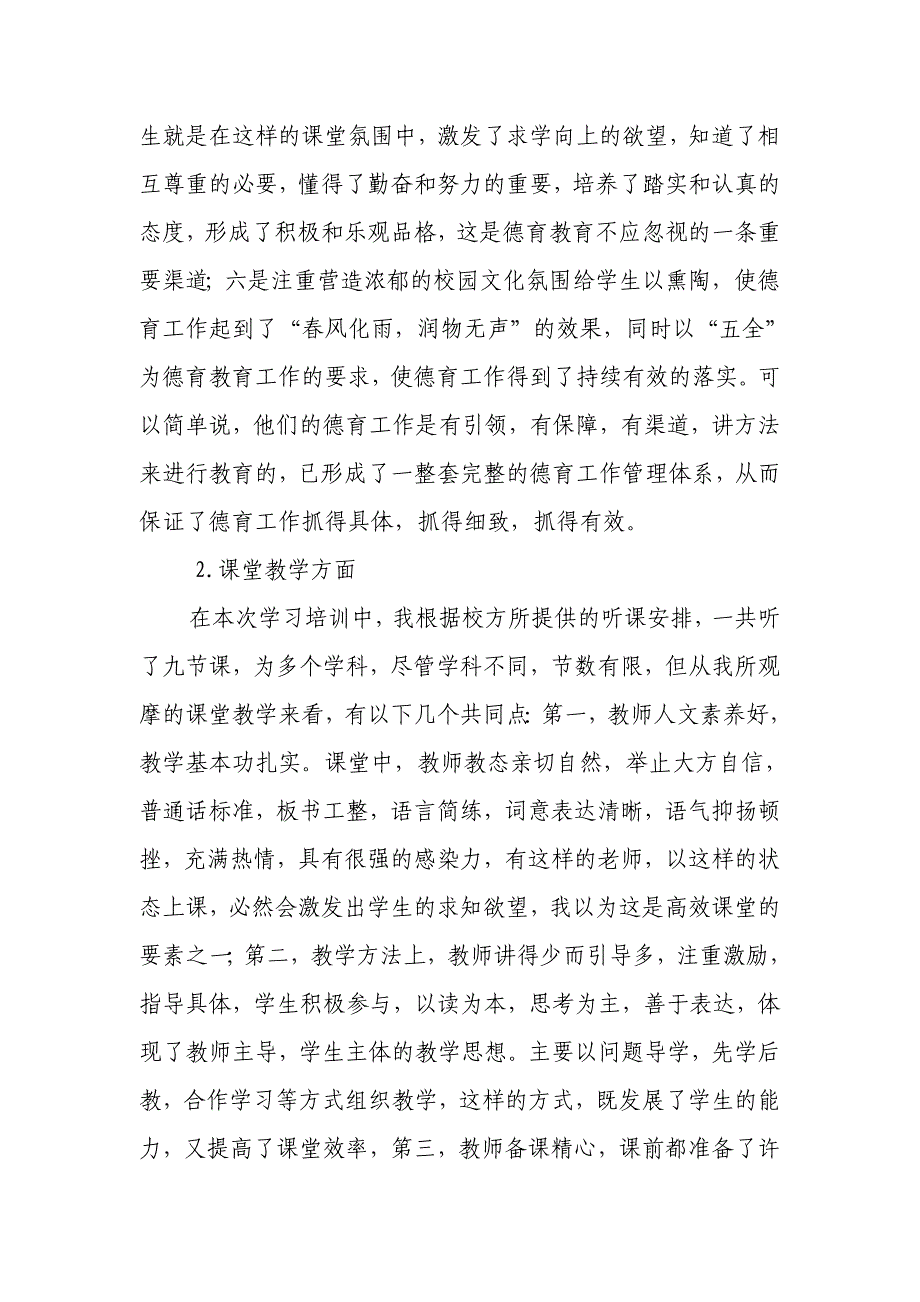 生就是在这样的课堂氛围中，激发了求学向上的欲望，知道了相
互尊重的必要，懂得了勤奋和努力的重要，培养了踏实和认真的
态度，形成了积极和乐观品格，这是德育教育不应忽视的一条重
要渠道；六是注重营造浓郁的校园文化氛围给学生以熏陶，使德
育工作起到了“春风化雨，润物无声”的效果，同时以“五全”
为德育教育工作的要求，使德育工作得到了持续有效的落实。可
以简单说，他们的德育工作是有引领，有保障，有渠道，讲方法
来进行教育的，已形成了一整套完整的德育工作管理体系，从而
保证了德育工作抓得具体，抓得细致，抓得有效。
2.课堂教学方面
在本次学习培训中，我根据校方所提供的听课安排，一共听
了九节课，为多个学科，尽管学科不同，节数有限，但从我所观
摩的课堂教学来看，有以下几个共同点：第一，教师人文素养好，
教学基本功扎实。课堂中，教师教态亲切自然，举止大方自信，
普通话标准，板书工整，语言简练，词意表达清晰，语气抑扬顿
挫，充满热情，具有很强的感染力，有这样的老师，以这样的状
态上课，必然会激发出学生的求知欲望，我以为这是高效课堂的
要素之一；第二，教学方法上，教师讲得少而引导多，注重激励，
指导具体，学生积极参与，以读为本，思考为主，善于表达，体
现了教师主导，学生主体的教学思想。主要以问题导学，先学后
教，合作学习等方式组织教学，这样的方式，既发展了学生的能
力，又提高了课堂效率，第三，教师备课精心，课前都准备了许